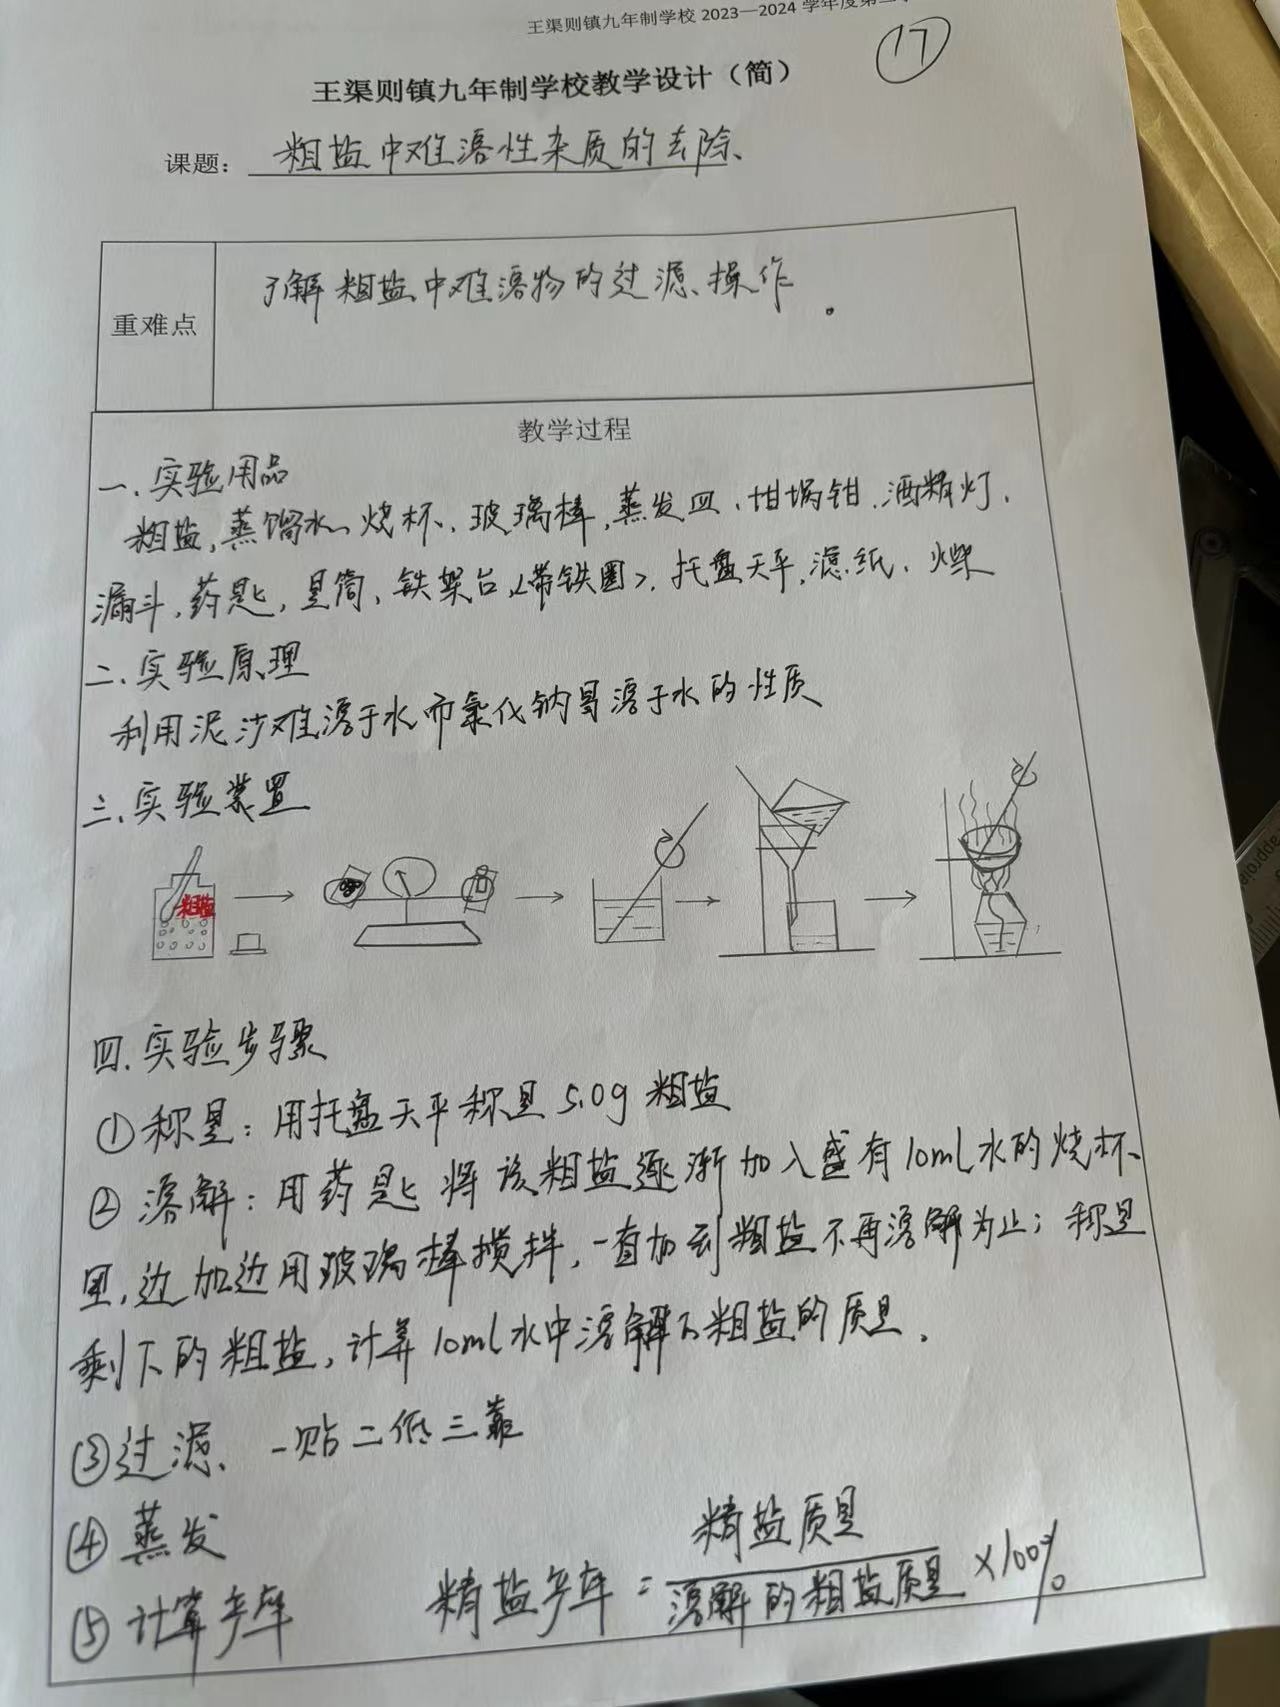 王渠则镇九年制学校 2023—2024 学年度第二
17
王渠则镇九年制学校教学设计（简）
课题： 粗盐中难溶性杂质的去除、
重难点
了解粗盐中难溶物的过滤、操作。
教学过程
一、实验用品
粗盐，蒸馏水、烧杯、玻璃棒，蒸发皿、坩埚钳、酒精灯、
漏斗，药匙，量筒，铁架台<带铁圈>，托盘天平，滤纸、火柴
二、实验原理
利用泥沙难溶于水而氯化钠易溶于水的性质
三、实验装置
粗盐
四、实验步骤
①称量：用托盘天平称量5.0g粗盐
②溶解：用药匙将该粗盐逐渐加入盛有10ml水的烧杯
里，边加边用玻璃棒搅拌，一直加到粗盐不再溶解为止；称量
剩下的粗盐，计算10ml水中溶解了粗盐的质量。
③过滤、一贴二低三靠
④蒸发
⑤计算产率
精盐产率=精盐质量/溶解的粗盐质量×100%